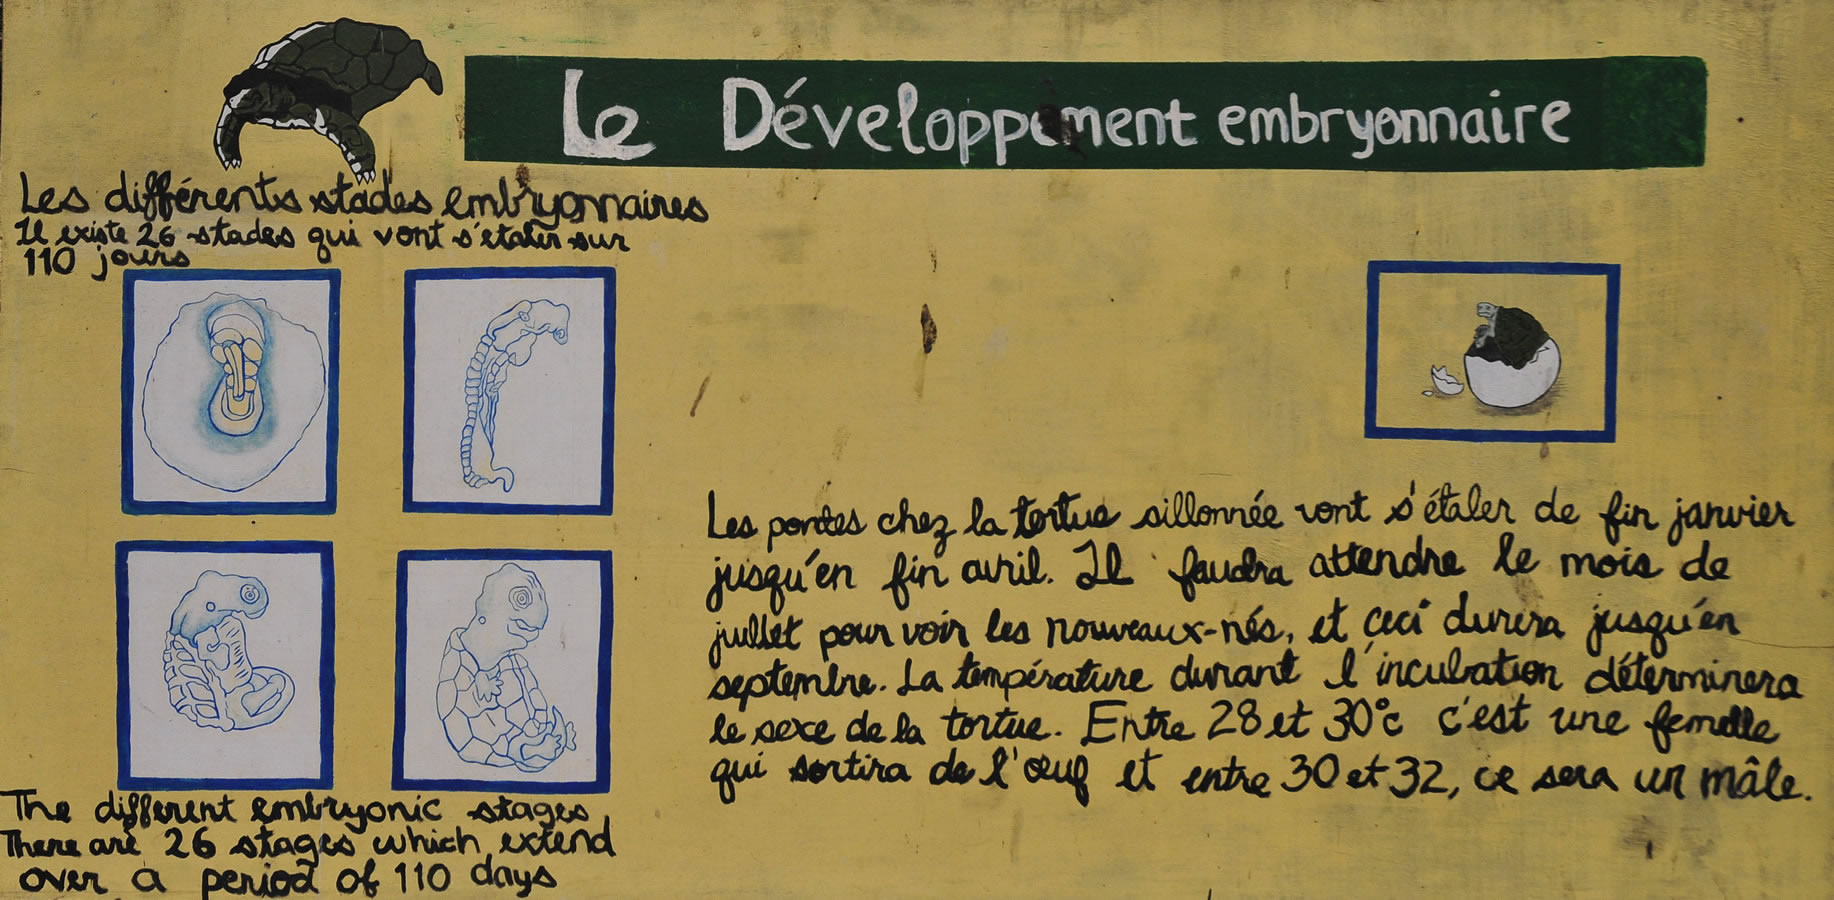 Le Développement embryonnaire
Les différents stades embryonnaires
Il existe 26 stades qui vont s'étaler sur
110 jours
Les pontes chez la tortue sillonnée vont s'étaler de fin janvier
jusqu'en fin avril. Il faudra attendre le mois de
juillet pour voir les nouveaux-nés, et ceci durera jusqu'en
septembre. La température durant l'incubation déterminera
le sexe de la tortue. Entre 28 et 30°c c'est une femelle
qui sortira de l'œuf et entre 30 et 32, ce sera un mâle.
The different embryonic stages
There are 26 stages which extend
over a period of 110 days